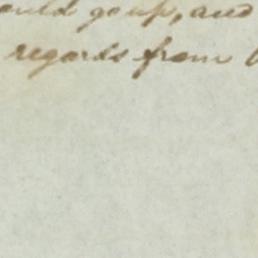 ould go up, and
regards from